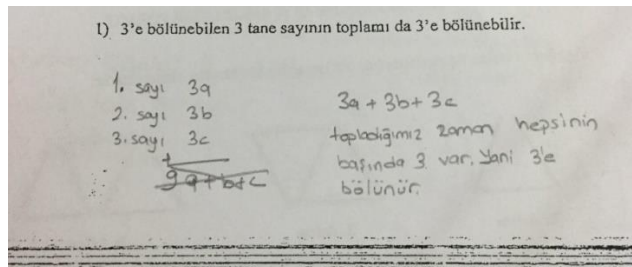 1) 3'e bölünebilen 3 tane sayının toplamı da 3'e bölünebilir.
1. sayı 3a
2. sayı 3b
3. sayı 3c
+
9a+b+c
3a + 3b + 3c
topladığımız zaman hepsinin
başında 3 var. Yani 3'e
bölünür.